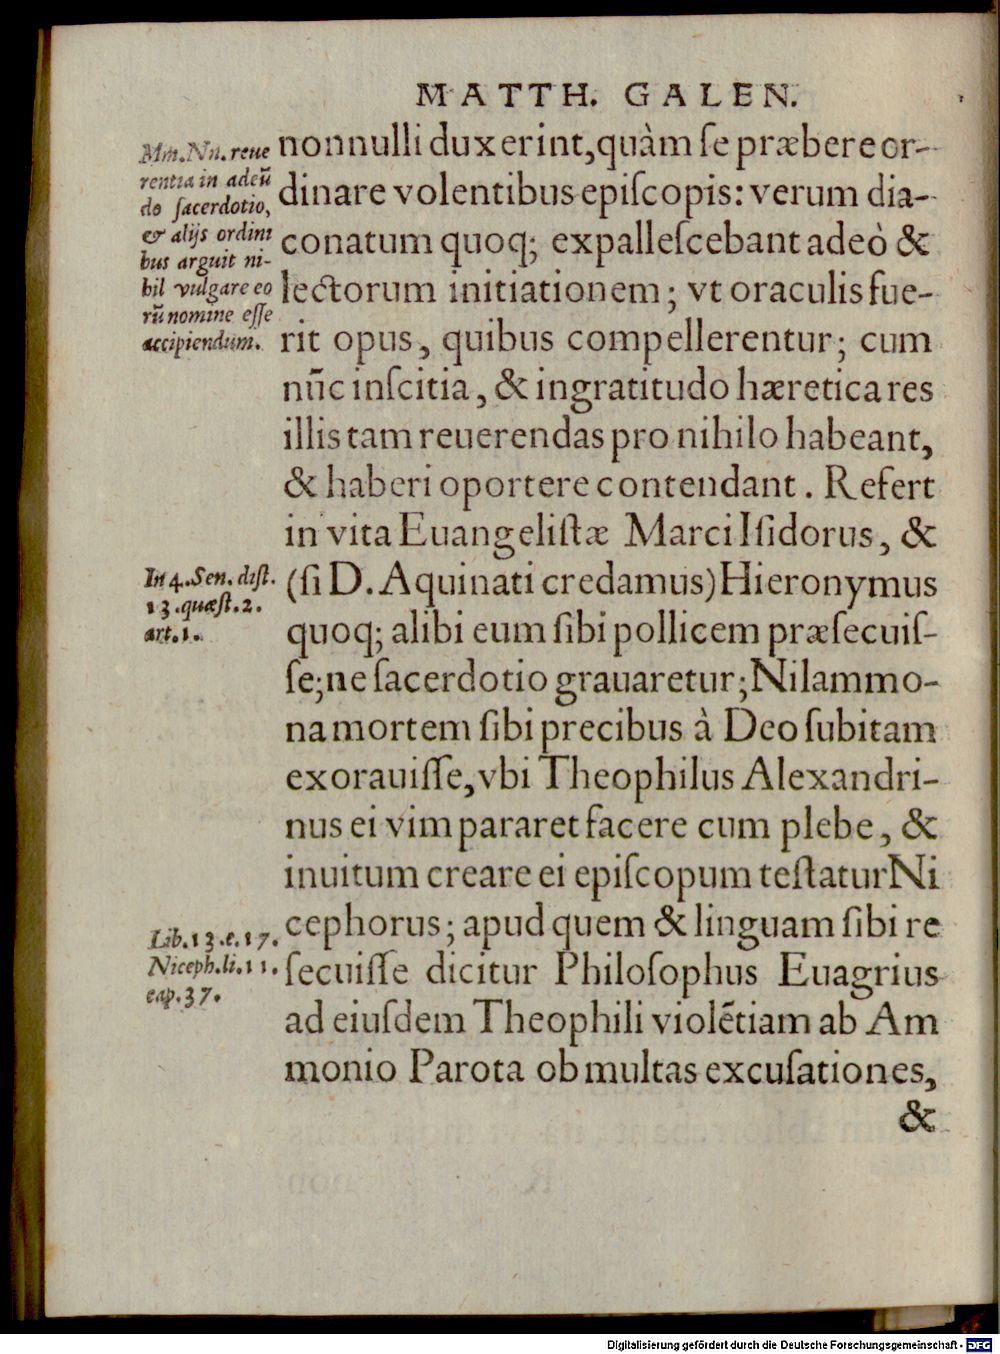 MATTH. GALEN.
Mm.Nn. reue
rentia in adeũ
do ſacerdotio,
& alijs ordini
bus arguit ni-
hil vulgare eo
rũ nomine eſſe
accipiendum.
nonnulli duxerint, quàm ſe præbere or-
dinare volentibus epiſcopis: verum dia-
conatum quoq; expalleſcebant adeò &
lectorum initiationem; vt oraculis fue-
rit opus, quibus compellerentur; cum
nũc inſcitia, & ingratitudo hæretica res
illis tam reuerendas pro nihilo habeant,
& haberi oportere contendant. Refert
in vita Euangeliſtæ Marci Iſidorus, &
In 4. Sen. diſt.
13. quæſt. 2.
art. 1.
(ſi D. Aquinati credamus) Hieronymus
quoq; alibi eum ſibi pollicem præſecuiſ-
ſe; ne ſacerdotio grauaretur; Nilammo-
na mortem ſibi precibus à Deo ſubitam
exorauiſſe, vbi Theophilus Alexandri-
nus ei vim pararet facere cum plebe, &
inuitum creare ei epiſcopum teſtatur Ni
Lib. 13. c. 17.
Niceph. li. 11.
cap. 37.
cephorus; apud quem & linguam ſibi re
ſecuiſſe dicitur Philoſophus Euagrius
ad eiuſdem Theophili violẽtiam ab Am
monio Parota ob multas excuſationes,
&
Digitalisierung gefördert durch die Deutsche Forschungsgemeinschaft - DFG